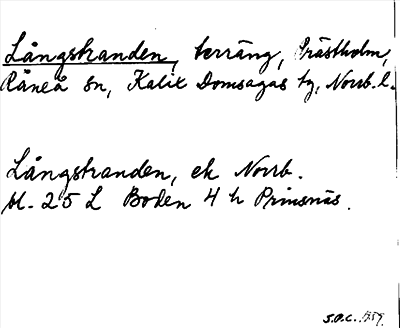 Långstranden, terräng, Prästholm,
Råneå sn, Kalix Domsagas tg, Norrb. l.
Långstranden, ek Norrb.
bl. 25 L Boden 4 h Prinsnäs.
S.O.C. 1959.